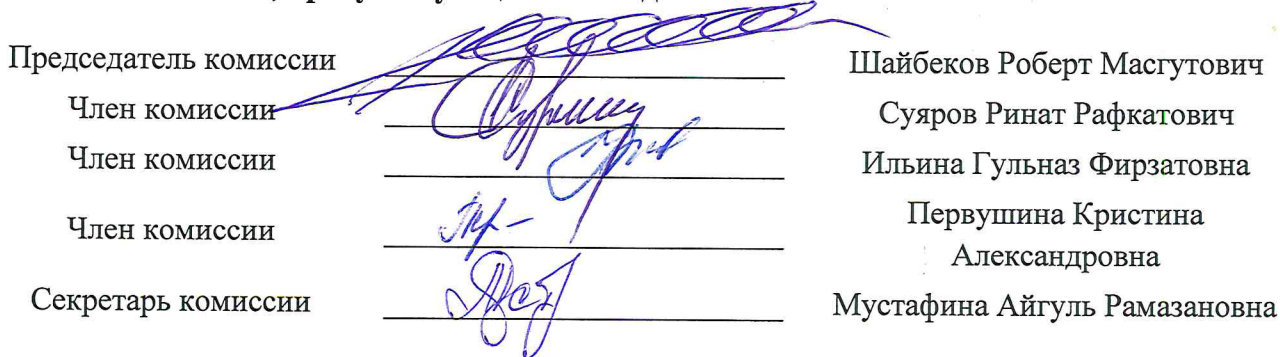 Председатель комиссии Шайбеков Роберт Масгутович
Член комиссии Суяров Ринат Рафкатович
Член комиссии Ильина Гульназ Фирзатовна
Член комиссии Первушина Кристина
Александровна
Секретарь комиссии Мустафина Айгуль Рамазановна